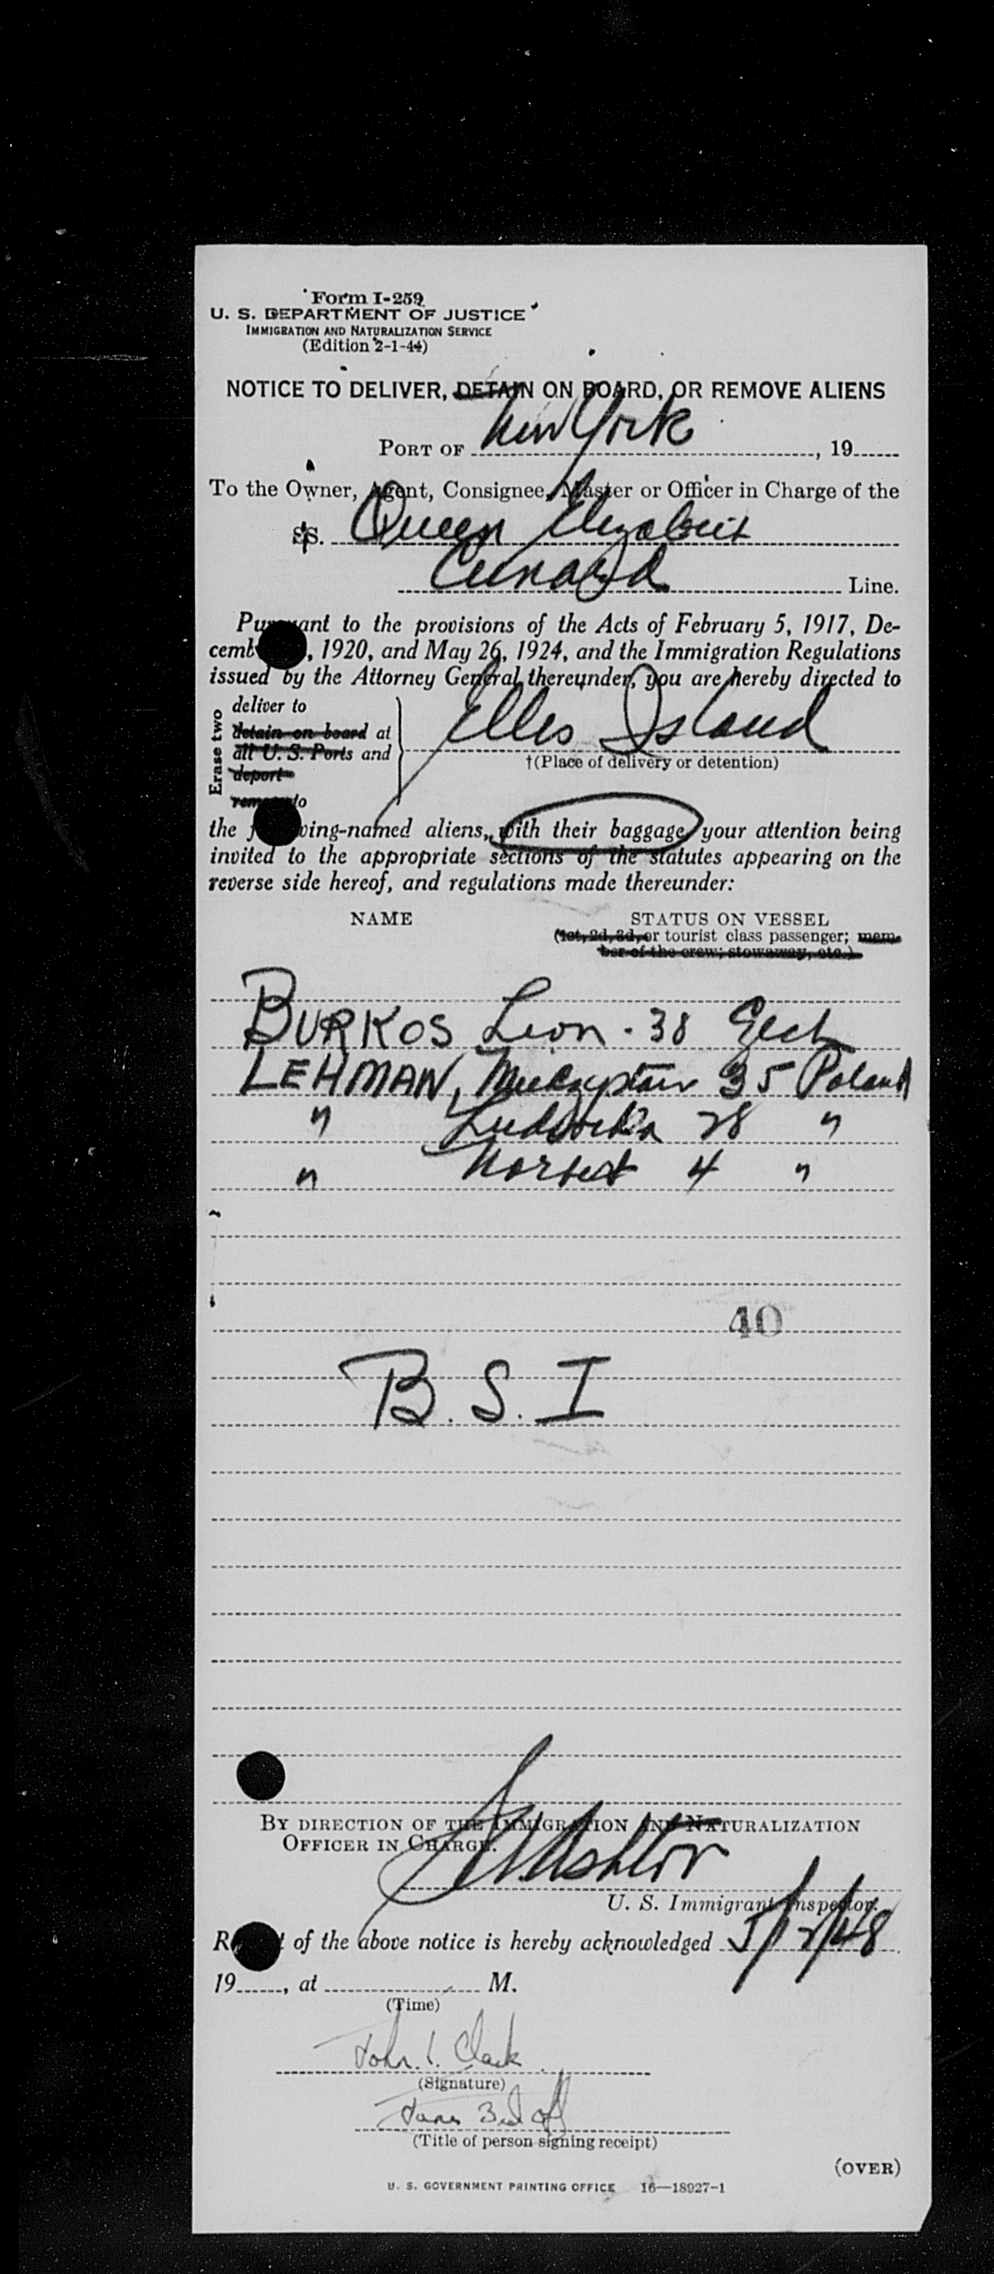 Form I-259
U. S. DEPARTMENT OF JUSTICE
IMMIGRATION AND NATURALIZATION SERVICE
(Edition 2-1-44)
NOTICE TO DELIVER, DETAIN ON BOARD, OR REMOVE ALIENS
PORT OF New York, 19
To the Owner, Agent, Consignee, Master or Officer in Charge of the
SS. Queen Elizabeth
Cunard Line.
Pursuant to the provisions of the Acts of February 5, 1917, De-
cemb , 1920, and May 26, 1924, and the Immigration Regulations
issued by the Attorney General thereunder, you are hereby directed to
Erase two
deliver to
detain on board at
all U. S. Ports and
deport
remove to
Ellis Island
†(Place of delivery or detention)
the following-named aliens, with their baggage, your attention being
invited to the appropriate sections of the statutes appearing on the
reverse side hereof, and regulations made thereunder:
NAME STATUS ON VESSEL
(1st, 2d, 3d, or tourist class passenger; mem-
ber of the crew; stowaway, etc.)
BURKOS Leon - 38
LEHMAN, 35 Poland
" Ludwika 28 "
" Norbert 4 "
40
B. S. I
BY DIRECTION OF THE IMMIGRATION AND NATURALIZATION
OFFICER IN CHARGE.
U. S. Immigrant Inspector.
Receipt of the above notice is hereby acknowledged 5/12/48
19, at M.
(Time)
John. L. Clark
(Signature)
3rd off
(Title of person signing receipt)
(OVER)
U. S. GOVERNMENT PRINTING OFFICE 16—18927-1